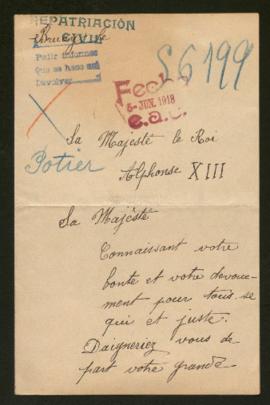 REPATRIACIÓN
CIVIL
Pedir informes
Que se haga así
Devolver
S6199
Fecha
5-JUN. 1918
e.a.c.
Potier
Sa Majesté le Roi
Alphonse XIII
Sa Majésté
Connaissant votre
bonte et votre devoue-
ment pour tous se
qui et juste.
Daigneriez vous de
part votre grande